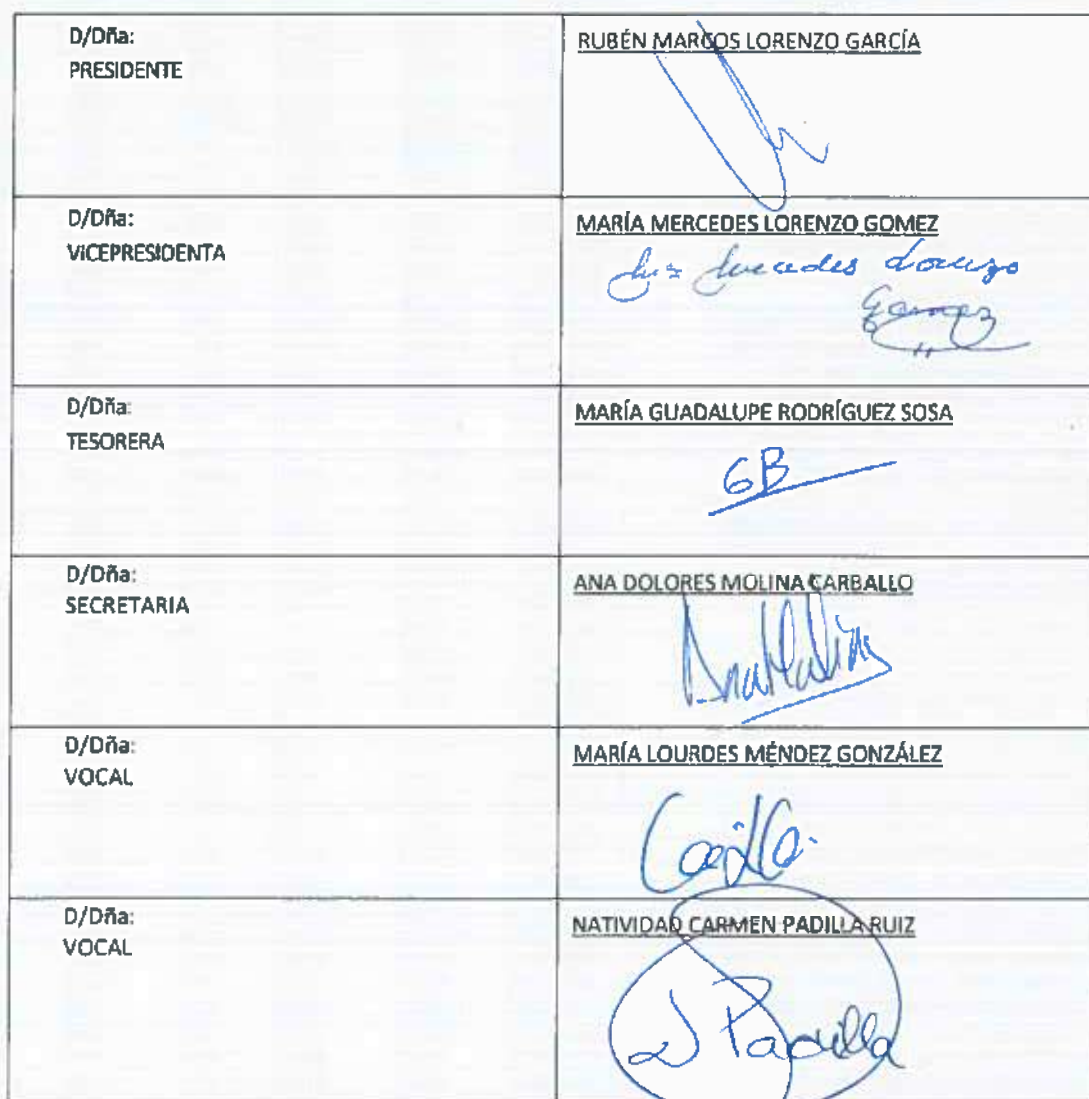 D/Dña:
PRESIDENTE
RUBÉN MARCOS LORENZO GARCÍA
D/Dña:
VICEPRESIDENTA
MARÍA MERCEDES LORENZO GOMEZ
Mercedes Lorenzo
Gomez
D/Dña:
TESORERA
MARÍA GUADALUPE RODRÍGUEZ SOSA
GB
D/Dña:
SECRETARIA
ANA DOLORES MOLINA CARBALLO
Ana Molina
D/Dña:
VOCAL
MARÍA LOURDES MÉNDEZ GONZÁLEZ
D/Dña:
VOCAL
NATIVIDAD CARMEN PADILLA RUIZ
Padilla